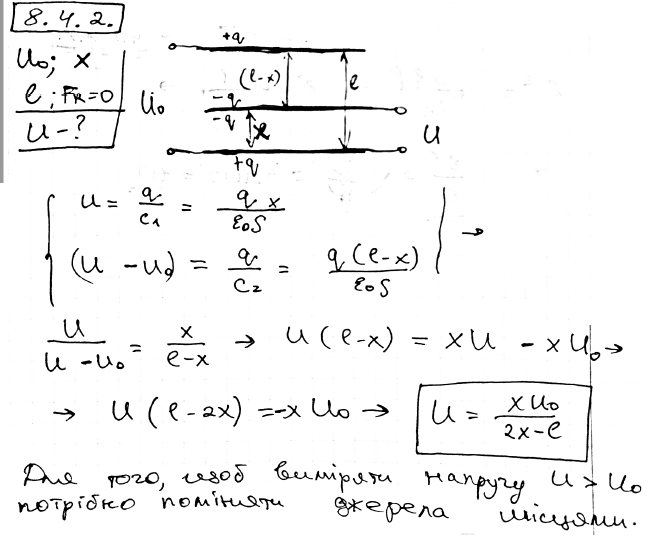 8.4.2.
U₀; x
ℓ; Fк=0
U-?
+q
(ℓ-x)
ℓ
U₀
-q
-q
x
U
+q
U = q/c₁ = qx/ε₀S
(U - U₀) = q/c₂ = q(ℓ-x)/ε₀S →
U/(U - U₀) = x/(ℓ-x) → U(ℓ-x) = xU - xU₀ →
→ U(ℓ-2x) = -xU₀ → U = xU₀/(2x-ℓ)
Для того, щоб виміряти напругу U > U₀
потрібно поміняти джерела місцями.